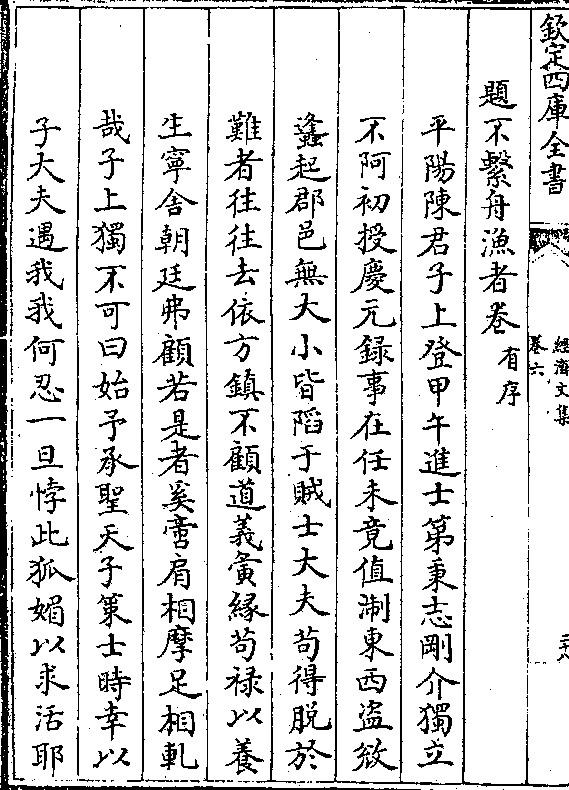 欽定四庫全書
經濟文集
卷六
二十八
題不繫舟漁者卷有序
平陽陳君子上登甲午進士第秉志剛介獨立
不阿初授慶元録事在任未竟值淛東西盗𤼵
蠭起郡邑無大小皆䧟于賊士大夫苟得脱於
難者徃徃去依方鎮不顧道義夤縁苟禄以養
生寧舍朝廷弗顧若是者奚啻肩相摩足相軋
哉子上獨不可曰始予承聖天子䇿士時幸以
子大夫遇我我何忍一旦悖此狐媚以求活耶